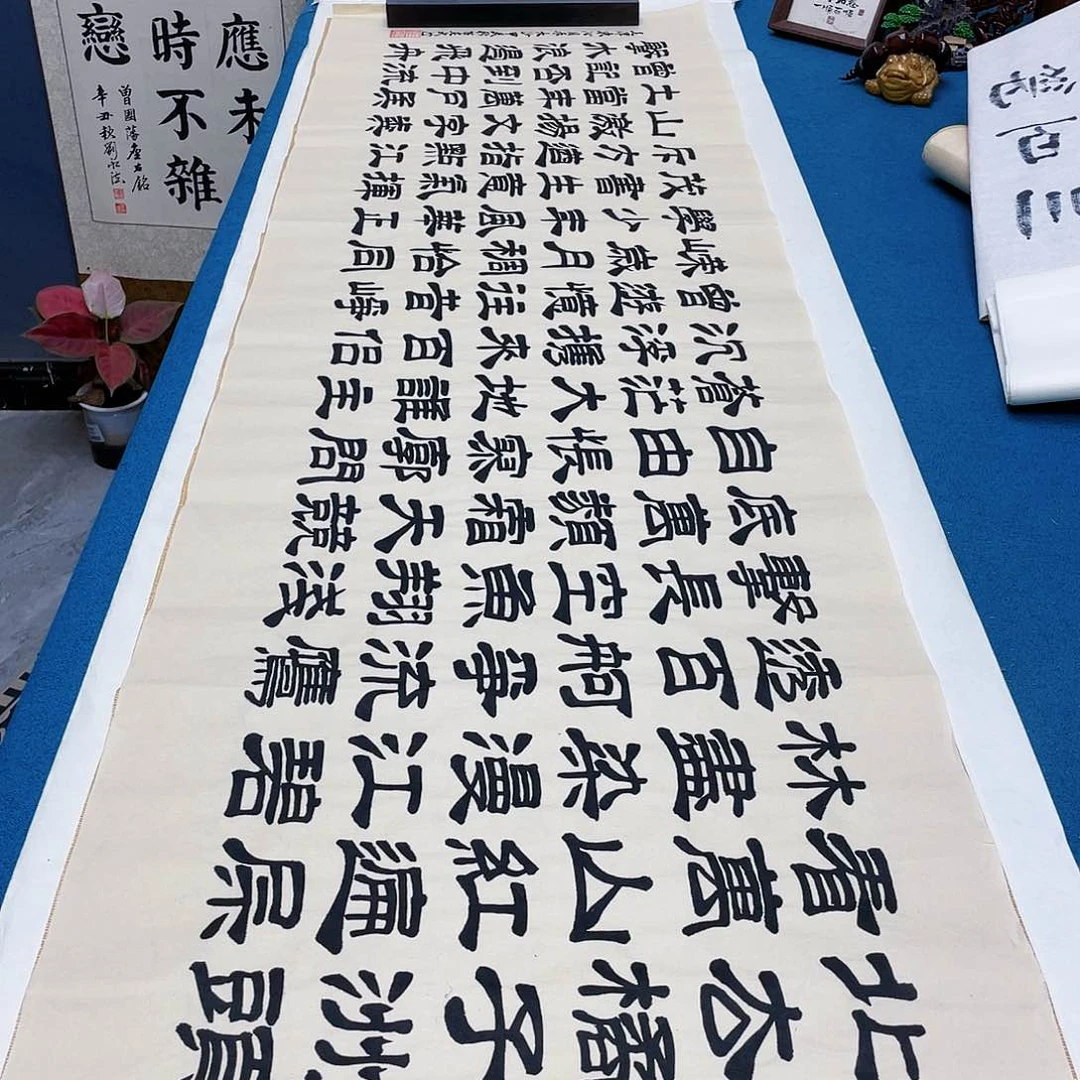 北去橘子洲頭
看萬山紅遍層
林盡染漫江碧
透百舸爭流鷹
擊長空魚翔淺
底萬類霜天競
自由悵寥廓問
蒼茫大地誰主
沉浮攜來百侶
曾遊憶往昔崢
嶸歲月稠恰同
學少年風華正
茂書生意氣揮
斥方遒指點江
山激揚文字糞
土當年萬戶侯
曾記否到中流
擊水浪遏飛舟
應未
時不雜
戀
曾國藩座右銘
辛丑秋劉